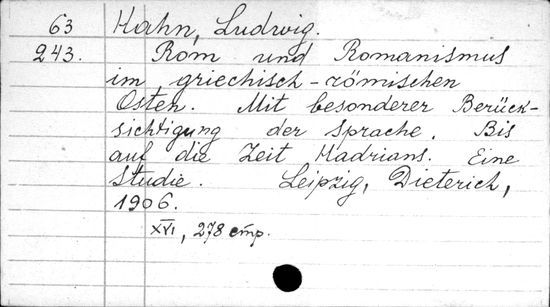 63 Hahn, Ludwig.
243. Rom und Romanismus
im griechisch-römischen
Osten. Mit besonderer Berück-
sichtigung der Sprache. Bis
auf die Zeit Hadrians. Eine
Studie. Leipzig, Dieterich,
1906.
XVI, 278 стр.